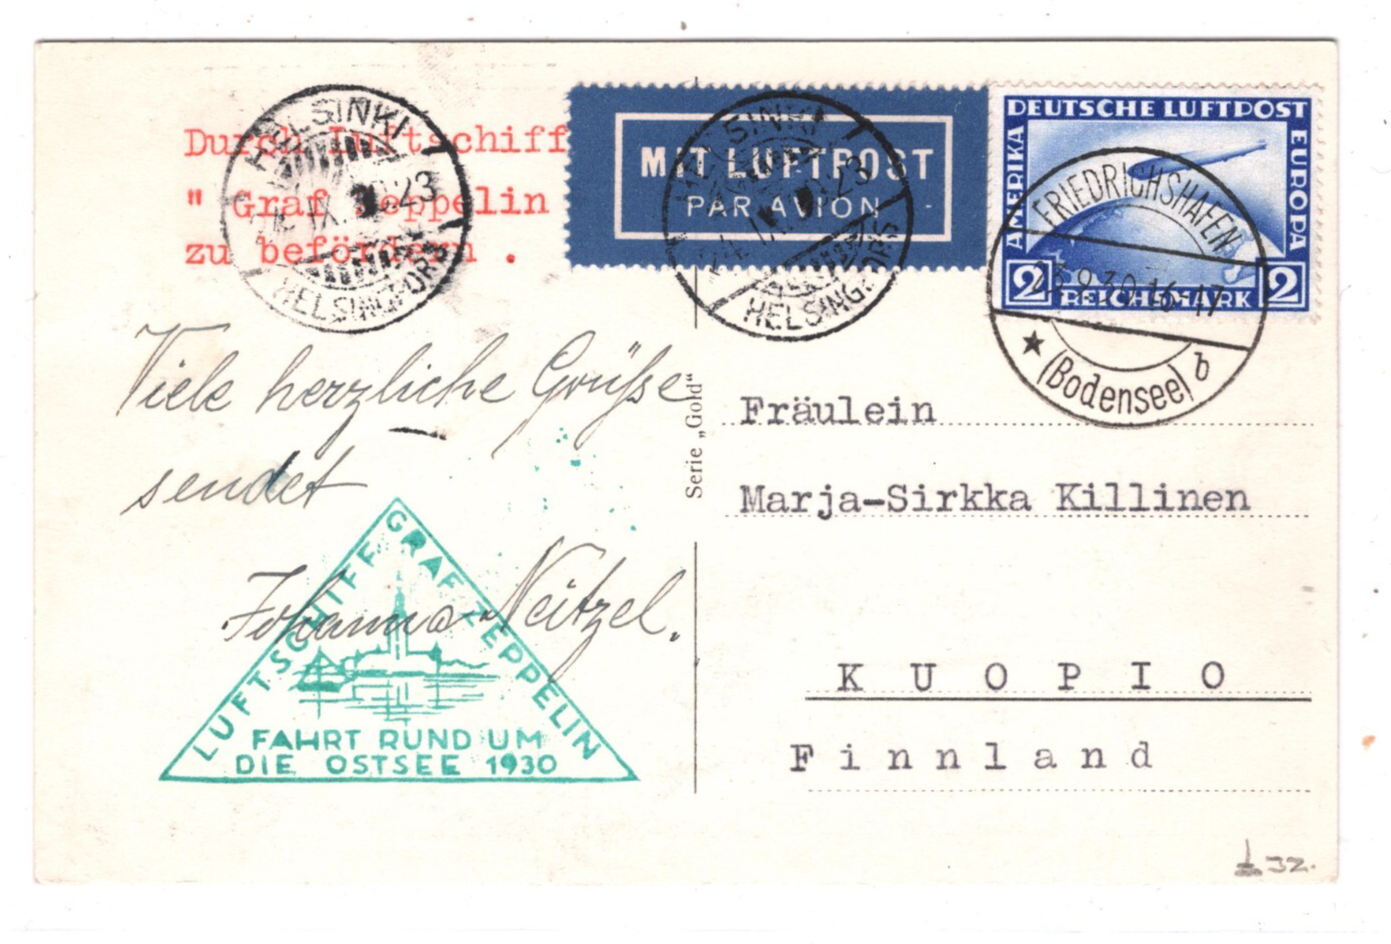 Durch Luftschiff
" Graf Zeppelin
zu befördern .
HELSINKI
24. IX. 30.23
HELSINGFORS
MIT LUFTPOST
PAR AVION
HELSINKI
24. IX. 30.23
HELSINGFORS
DEUTSCHE LUFTPOST
AMERIKA
EUROPA
2 REICHSMARK 2
FRIEDRICHSHAFEN
23.9.30.16-17
(Bodensee) b
Viele herzliche Grüße
sendet
Johanna Neitzel.
LUFTSCHIFF GRAF ZEPPELIN
FAHRT RUND UM
DIE OSTSEE 1930
Serie „Gold“
Fräulein
Marja-Sirkka Killinen
K U O P I O
F i n n l a n d
£ 32.